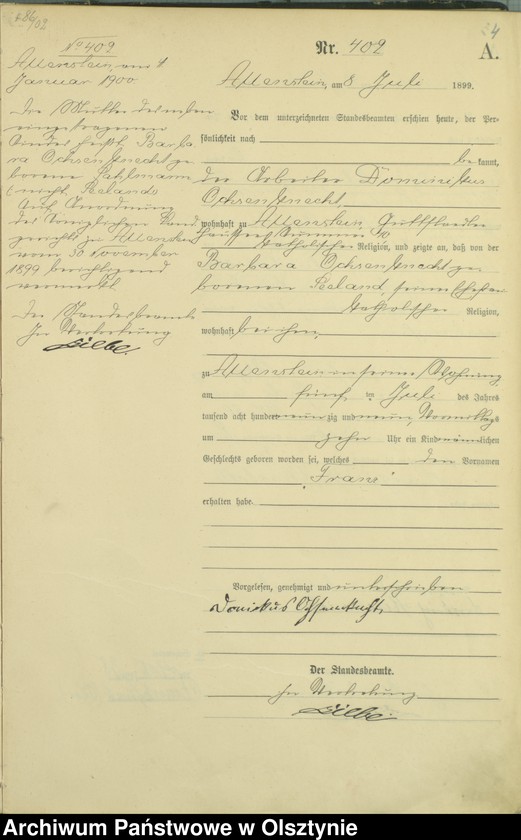 Nº 402
Allenstein, am 4
Januar 1900.
Die Mutter des neben
eingetragenen
Kindes heißt Barba
ra Ochsenknecht ge
borene
nicht Seeland
Auf Anordnung
des Königlichen
gerichts zu Allenstein
vom 30 November
1899 berichtigend
vermerkt.
Der Standesbeamte
In Vertretung
Nr. 402
A.
Allenstein, am 8 Juli 1899.
Vor dem unterzeichneten Standesbeamten erschien heute, der Per-
sönlichkeit nach
bekannt,
der Arbeiter Dominikus
Ochsenknecht
wohnhaft zu Allenstein, Guttstädter
katholischer Religion, und zeigte an, daß von der
Barbara Ochsenknecht ge
borenen Seeland seiner Ehefrau
katholischer Religion,
wohnhaft bei ihm
zu Allenstein in seiner Wohnung
am fünf ten Juli des Jahres
tausend acht hundert neun zig und neun, Vormittags
um zehn Uhr ein Kind männlichen
Geschlechts geboren worden sei, welches den Vornamen
Franz
erhalten habe.
Vorgelesen, genehmigt und unterschrieben
Ochsenknecht
Der Standesbeamte.
In Vertretung
Archiwum Państwowe w Olsztynie